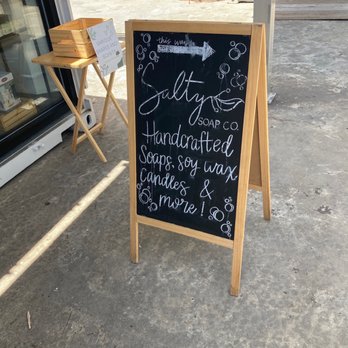 this way
Salty
SOAP CO.
Handcrafted
Soaps, soy wax
candles &
more!